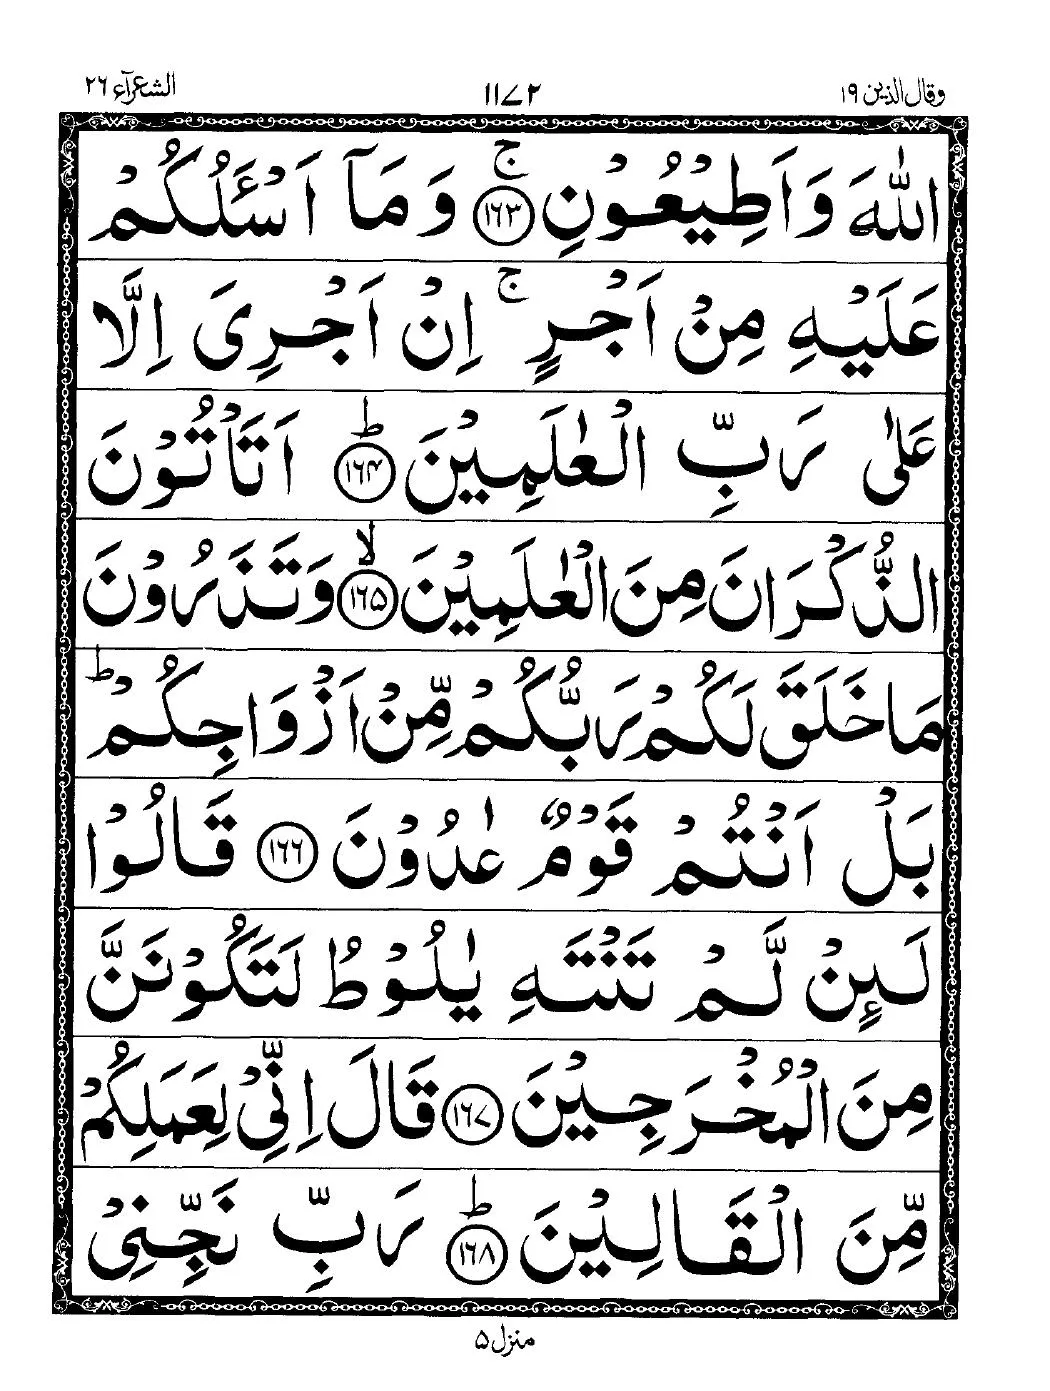 وقال الذين ۱۹ ۱۱۷۲ الشعرآء ۲۶
اللّٰهَ وَاَطِيْعُوْنِ ۚ‏﴿۱۶۳﴾ وَمَآ اَسْـَٔـلُكُمْ
عَلَيْهِ مِنْ اَجْرٍ‌ۚ اِنْ اَجْرِىَ اِلَّا
عَلٰى رَبِّ الْعٰلَمِيْنَؕ‏ ﴿۱۶۴﴾ اَتَاْتُوْنَ
الذُّكْرَانَ مِنَ الْعٰلَمِيْنَۙ‏ ﴿۱۶۵﴾ وَتَذَرُوْنَ
مَا خَلَقَ لَكُمْ رَبُّكُمْ مِّنْ اَزْوَاجِكُمْ‌ؕ
بَلْ اَنْتُمْ قَوْمٌ عٰدُوْنَ‏ ﴿۱۶۶﴾ قَالُوْا
لَٮِٕنْ لَّمْ تَنْتَهِ يٰلُوْطُ لَتَكُوْنَنَّ
مِنَ الْمُخْرَجِيْنَ‏ ﴿۱۶۷﴾ قَالَ اِنِّىْ لِعَمَلِكُمْ
مِّنَ الْقَالِيْنَؕ‏ ﴿۱۶۸﴾ رَبِّ نَجِّنِىْ
منزل ۵